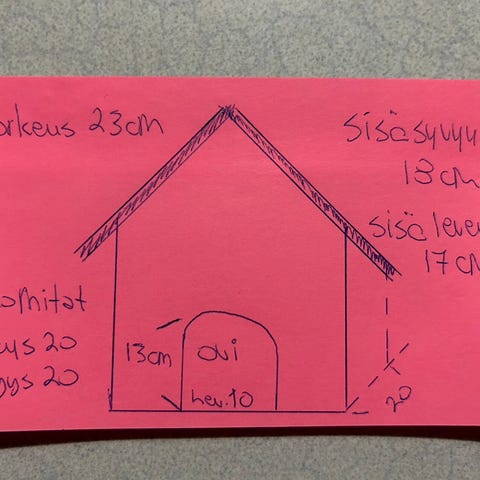 orkeus 23cm
sisäsyvyy
18cm
sisä leve
17 cm
omitat
ys 20
yys 20
13cm
ovi
lev.10
20